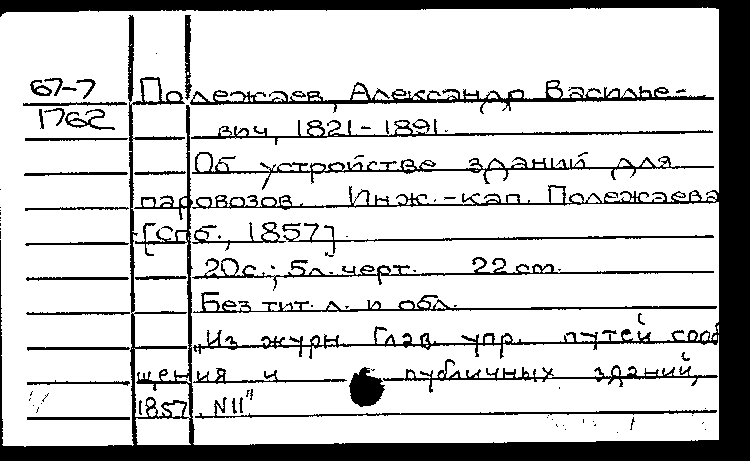 67-7 Полежаев, Александр Василье-
1762 вич, 1821-1891.
Об устройстве зданий для
паровозов. Инж.-кап. Полежаева
[Спб., 1857].
20с.; 5л. черт. 22 cm.
Без тит. л. и обл.
„Из журн. Глав. упр. путей сооб
щения и публичных зданий,
1857. N11"